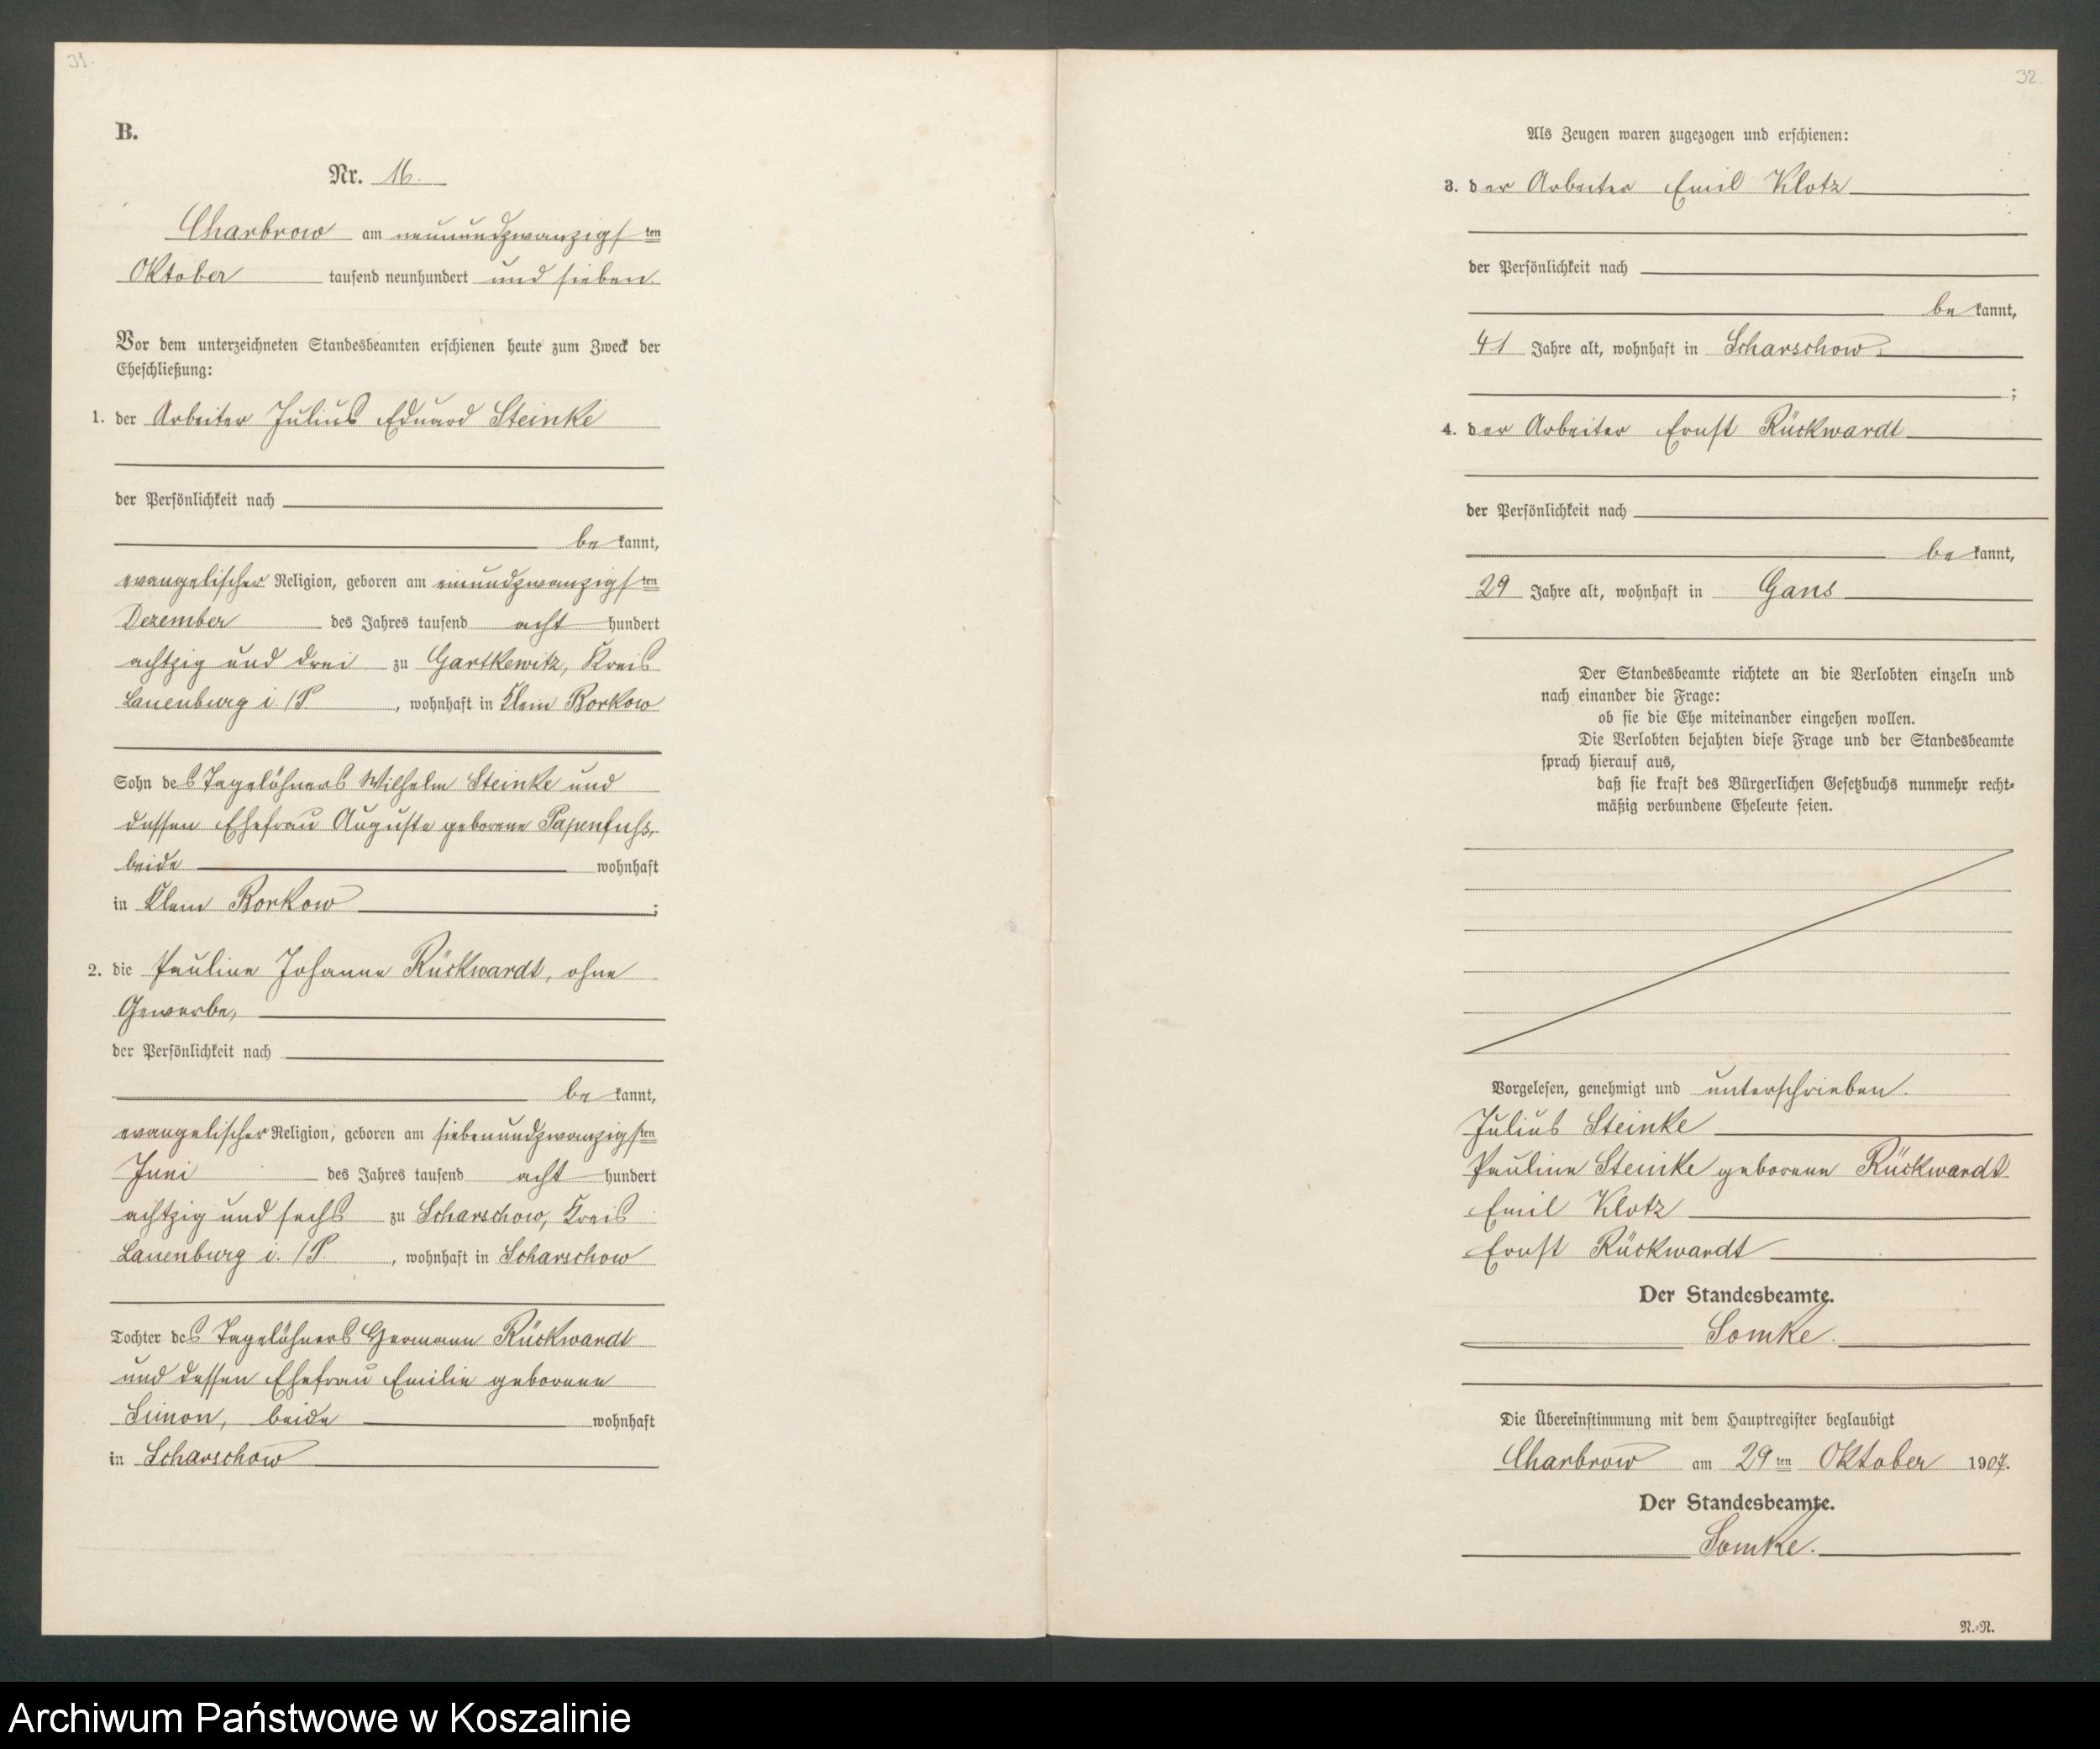 31.
B.
Nr. 16.
Charbrow am neunundzwanzigsten
Oktober tausend neunhundert und sieben.
Vor dem unterzeichneten Standesbeamten erschienen heute zum Zweck der
Eheschließung:
1. der Arbeiter Julius Eduard Steinke
der Persönlichkeit nach
bekannt,
evangelischer Religion, geboren am einundzwanzigsten
Dezember des Jahres tausend acht hundert
achtzig und drei zu Gartkewitz, Kreis
Lauenburg i./P. , wohnhaft in Klein Borkow
Sohn des Tagelöhners Wilhelm Steinke und
dessen Ehefrau Auguste geborene Papenfuhs,
beide wohnhaft
in Klein Borkow ;
2. die Pauline Johanne Rückwardt, ohne
Gewerbe,
der Persönlichkeit nach
bekannt,
evangelischer Religion, geboren am siebenundzwanzigsten
Juni des Jahres tausend acht hundert
achtzig und sechs zu Scharschow, Kreis
Lauenburg i./P. , wohnhaft in Scharschow
Tochter des Tagelöhners Hermann Rückwardt
und dessen Ehefrau Emilie geborene
Simon, beide wohnhaft
in Scharschow
32.
Als Zeugen waren zugezogen und erschienen:
3. der Arbeiter Emil Klotz
der Persönlichkeit nach
bekannt,
41 Jahre alt, wohnhaft in Scharschow,
;
4. der Arbeiter Ernst Rückwardt
der Persönlichkeit nach
bekannt,
29 Jahre alt, wohnhaft in Gans
Der Standesbeamte richtete an die Verlobten einzeln und
nach einander die Frage:
ob sie die Ehe miteinander eingehen wollen.
Die Verlobten bejahten diese Frage und der Standesbeamte
sprach hierauf aus,
daß sie kraft des Bürgerlichen Gesetzbuchs nunmehr recht-
mäßig verbundene Eheleute seien.
Vorgelesen, genehmigt und unterschrieben.
Julius Steinke
Pauline Steinke geborene Rückwardt
Emil Klotz
Ernst Rückwardt
Der Standesbeamte.
Somke.
Die Übereinstimmung mit dem Hauptregister beglaubigt
Charbrow am 29ten Oktober 1907.
Der Standesbeamte.
Somke.
N.-N.
Archiwum Państwowe w Koszalinie